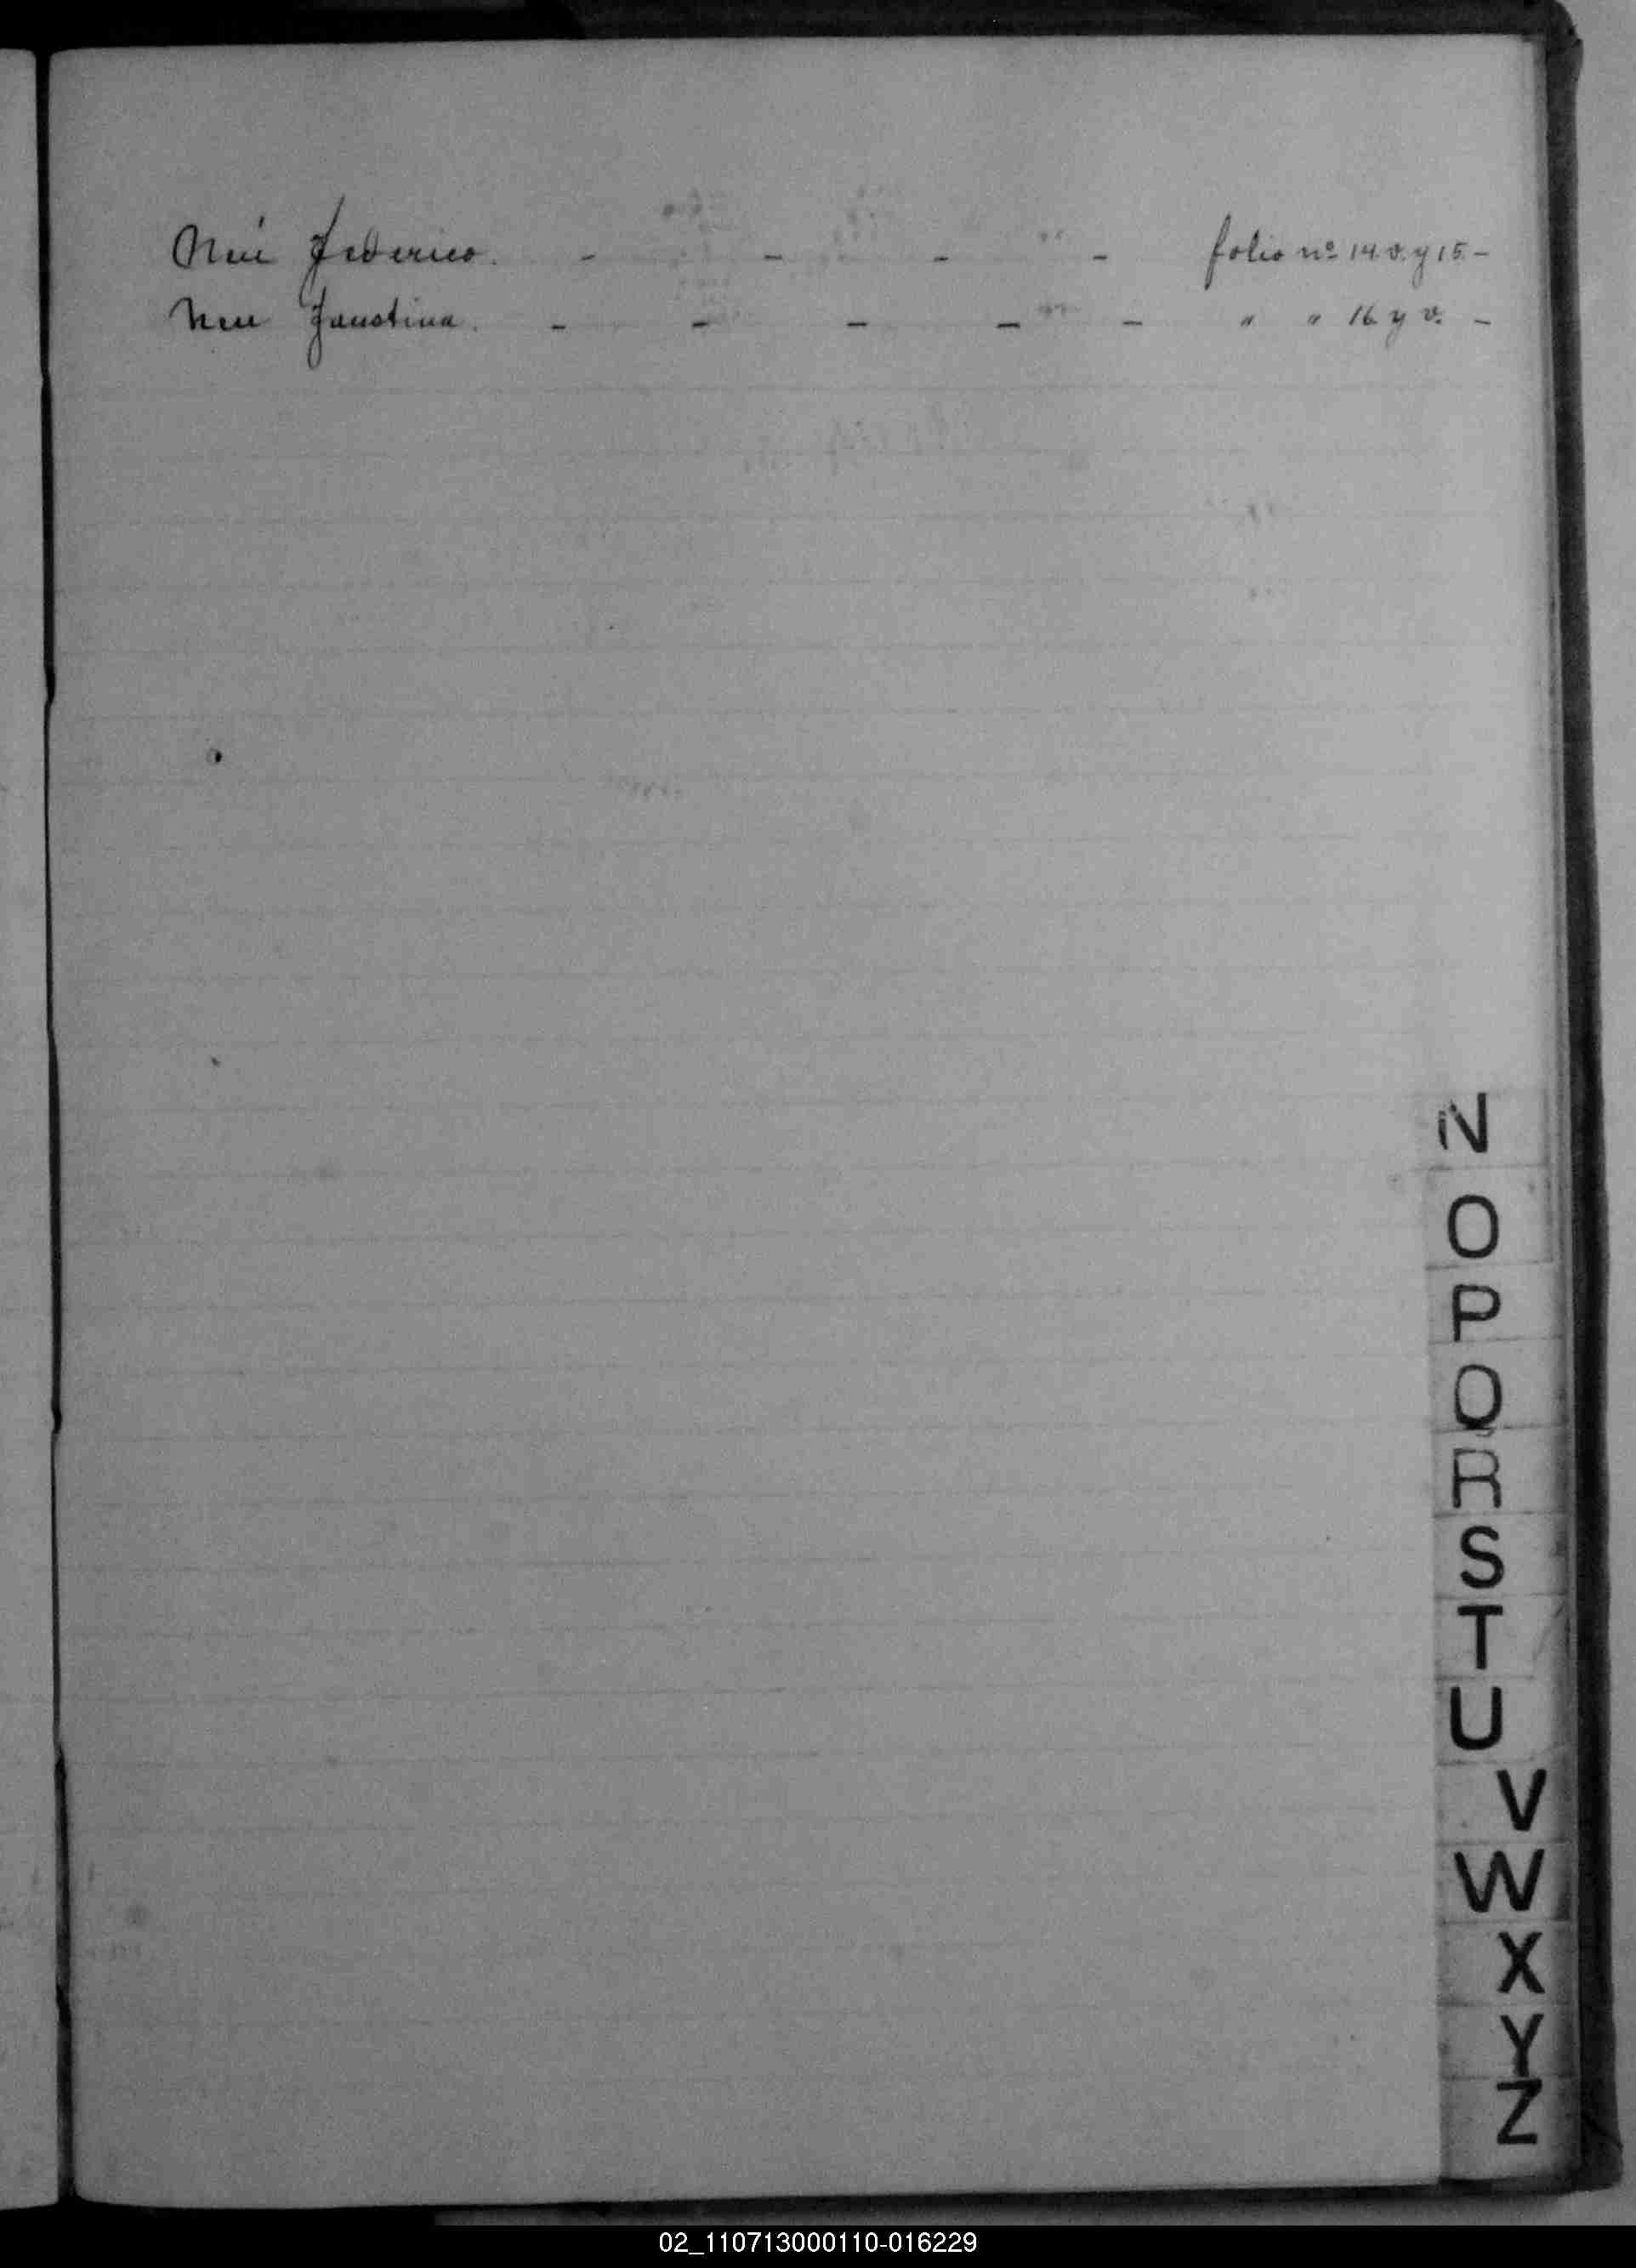 Neu Federico. - - - - folio nº 14 v. y 15 -
Neu Faustina. - - - - - " " 16 y v. -
N
O
P
Q
R
S
T
U
V
W
X
Y
Z
02_110713000110-016229